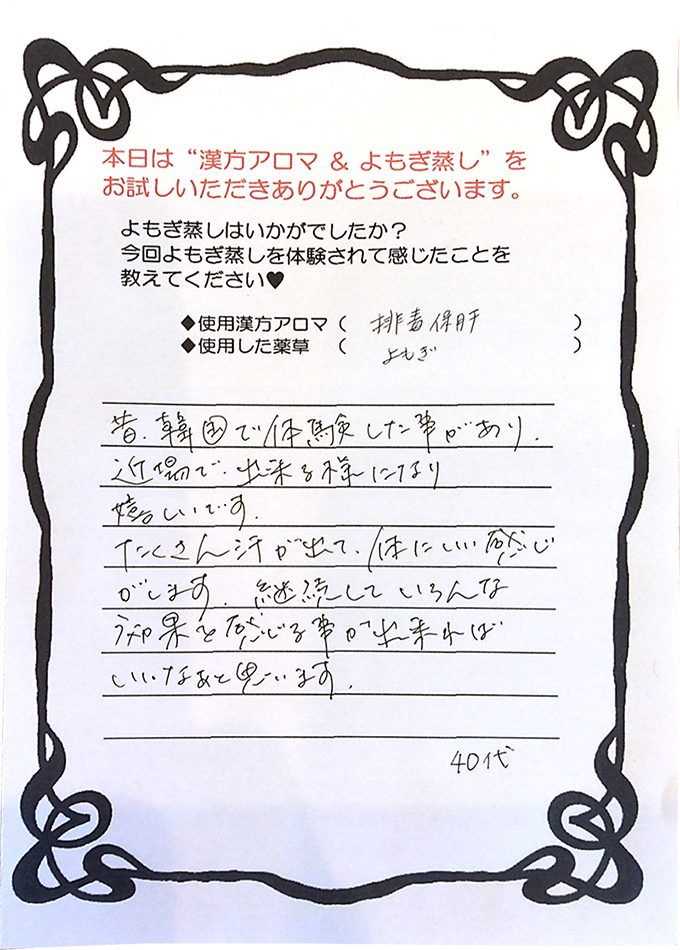 本日は“漢方アロマ & よもぎ蒸し”を
お試しいただきありがとうございます。
よもぎ蒸しはいかがでしたか？
今回よもぎ蒸しを体験されて感じたことを
教えてください♥
◆使用漢方アロマ（ 排毒保肝 ）
◆使用した薬草 （ よもぎ ）
昔、韓国で体験した事があり、
近場で出来る様になり
嬉しいです。
たくさん汗が出て、体にいい感じ
がします。継続していろんな
効果を感じる事が出来れば
いいなぁと思います。
40代